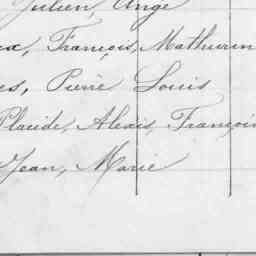 Julien, Ange
ex, François, Mathurin
es, Pierre Louis
Placide, Alexis, François
Jean, Marie